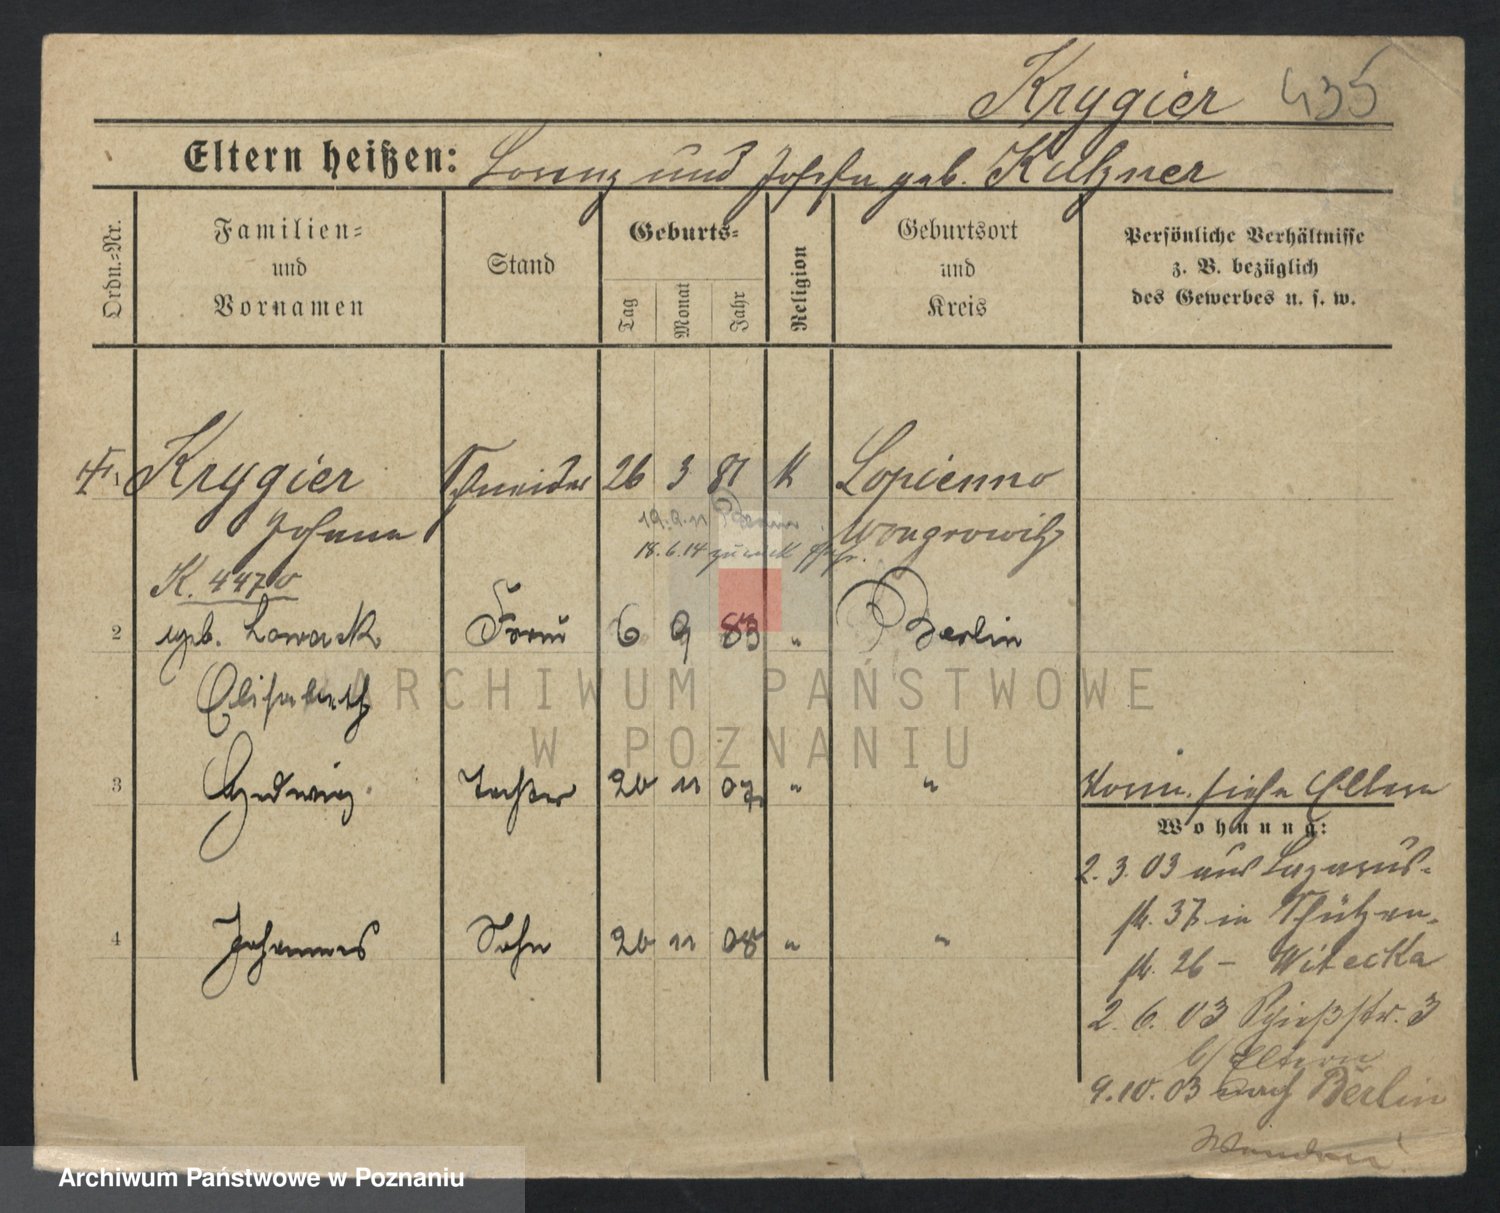 Krygier 435
Eltern heißen: Lorenz und Josefa geb. Kutzner
Ordn.-Nr.
Familien-
und
Vornamen
Stand
Geburts-
Tag
Monat
Jahr
Religion
Geburtsort
und
Kreis
Persönliche Verhältnisse
z. B. bezüglich
des Gewerbes u. s. w.
1 Krygier Schneider 26 3 81 K Lopienno
Johann Wongrowitz
19.9.11
18.6.14 zurück
K. 447
2 geb. Nowack Frau 6 9 83 " Berlin
Elisabeth
3 Hedwig Tochter 20 11 07 " "
siehe Eltern
Wohnung:
2.3.03 aus Lazarus-
str. 37 in Schützen-
4 Johannes Sohn 20 11 08 " "
str. 26 – Witecka
2.6.03 Schießstr. 3
b/ Eltern
9.10.03 nach Berlin
Wenden!
ARCHIWUM PAŃSTWOWE
W POZNANIU
Archiwum Państwowe w Poznaniu